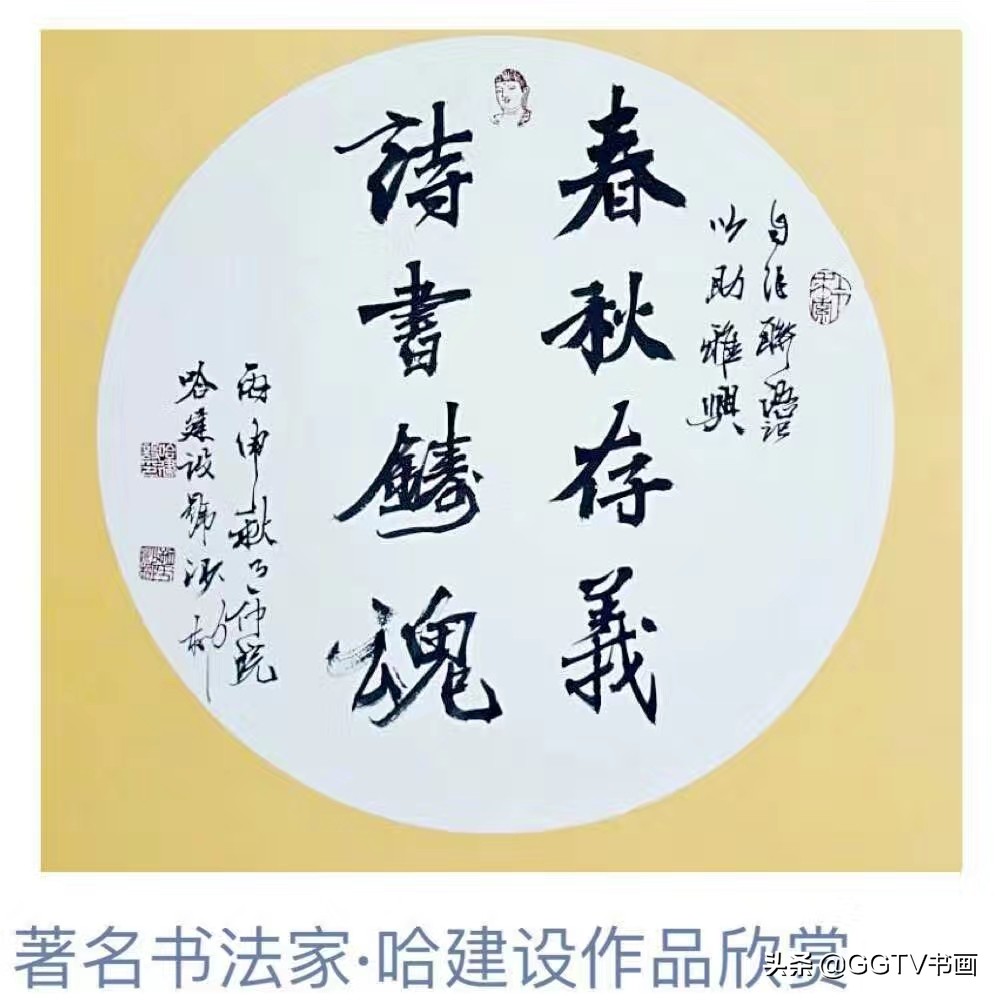 自作聯語
以助雅興
春秋存義
詩書鑄魂
丙申秋月
哈建设號
著名书法家·哈建设作品欣赏
头条 @GGTV书画